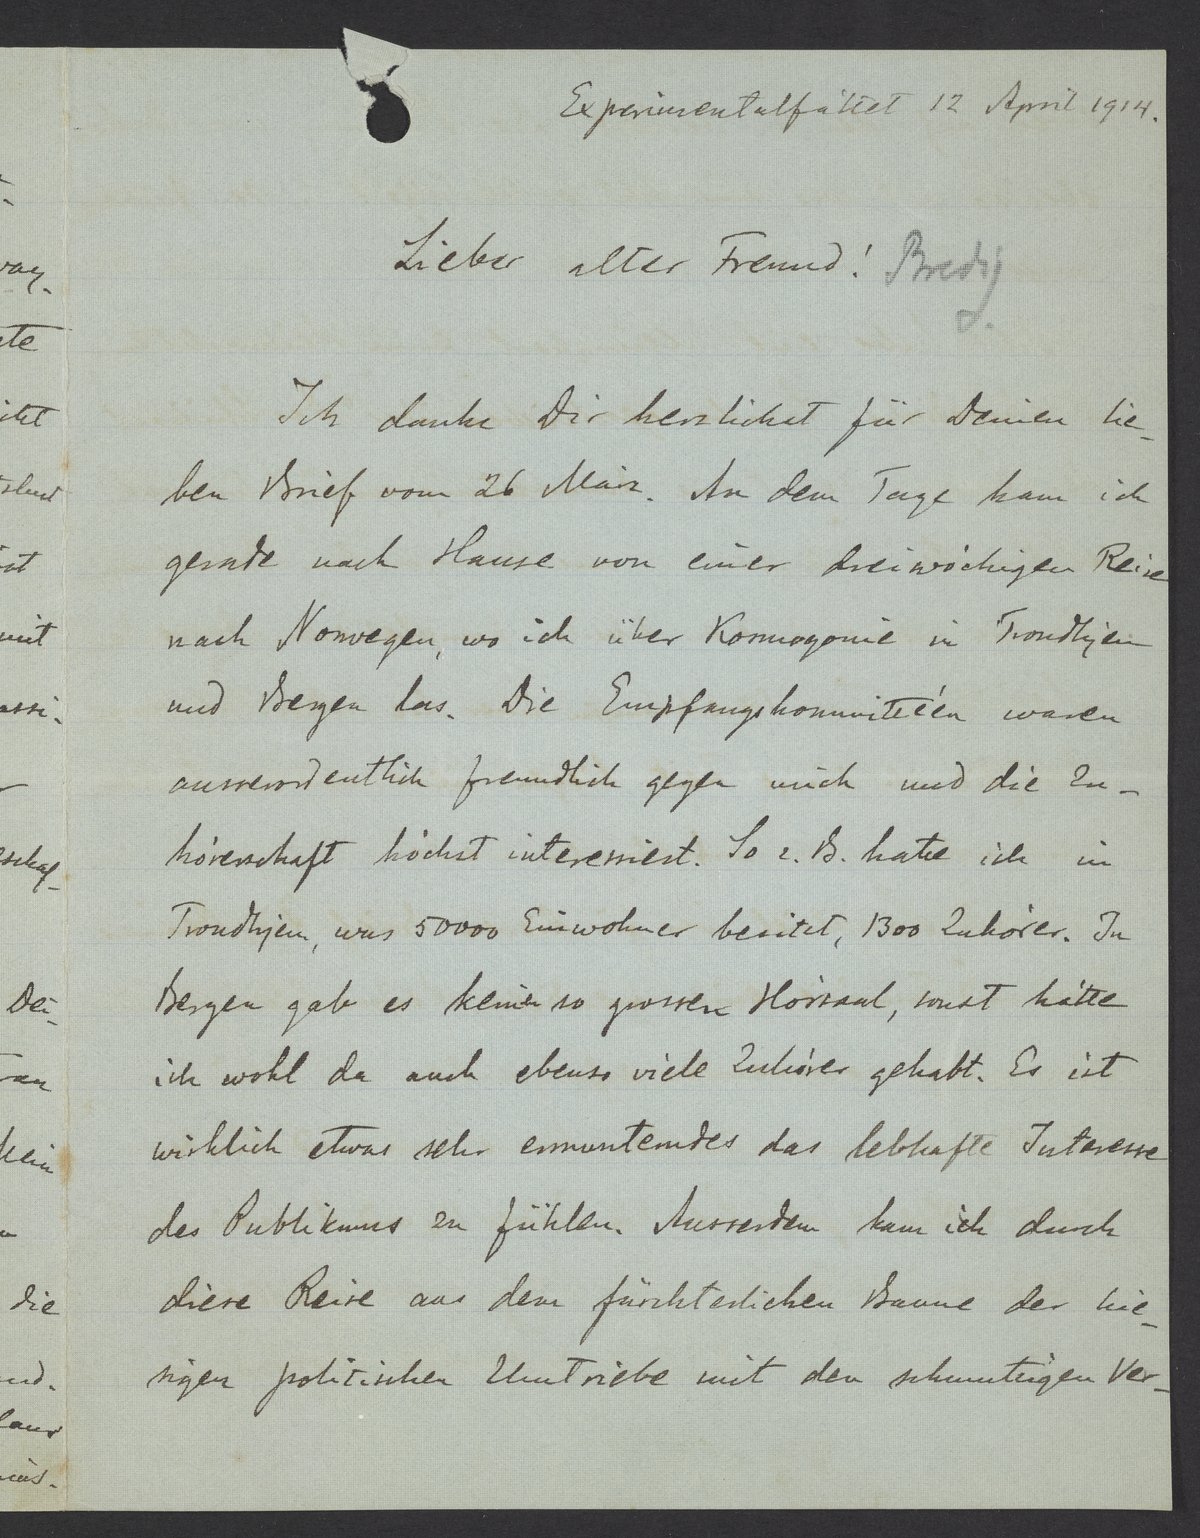 Experimentalfältet 12 April 1914.
Lieber alter Freund! Bredig
Ich danke Dir herzlichst für Deinen lie-
ben Brief vom 26 März. An dem Tage kam ich
gerade nach Hause von einer dreiwöchigen Reise
nach Norwegen, wo ich über Kosmogonie in Trondhjem
und Bergen las. Die Empfangskommittéen waren
ausserordentlich freundlich gegen mich und die Zu-
hörerschaft höchst interessiert. So z. B. hatte ich in
Trondhjem, was 50000 Einwohner besitzt, 1300 Zuhörer. In
Bergen gab es keinen so grossen Hörsaal, sonst hätte
ich wohl da auch ebenso viele Zuhörer gehabt. Es ist
wirklich etwas sehr ermunterndes das lebhafte Interesse
des Publikums zu fühlen. Ausserdem kam ich durch
diese Reise aus dem fürchterlichen Banne der hie-
sigen politischen Umtriebe mit den schmutzigen Ver-
ate
itzt
ist
mit
assi-
Dei-
kein
die